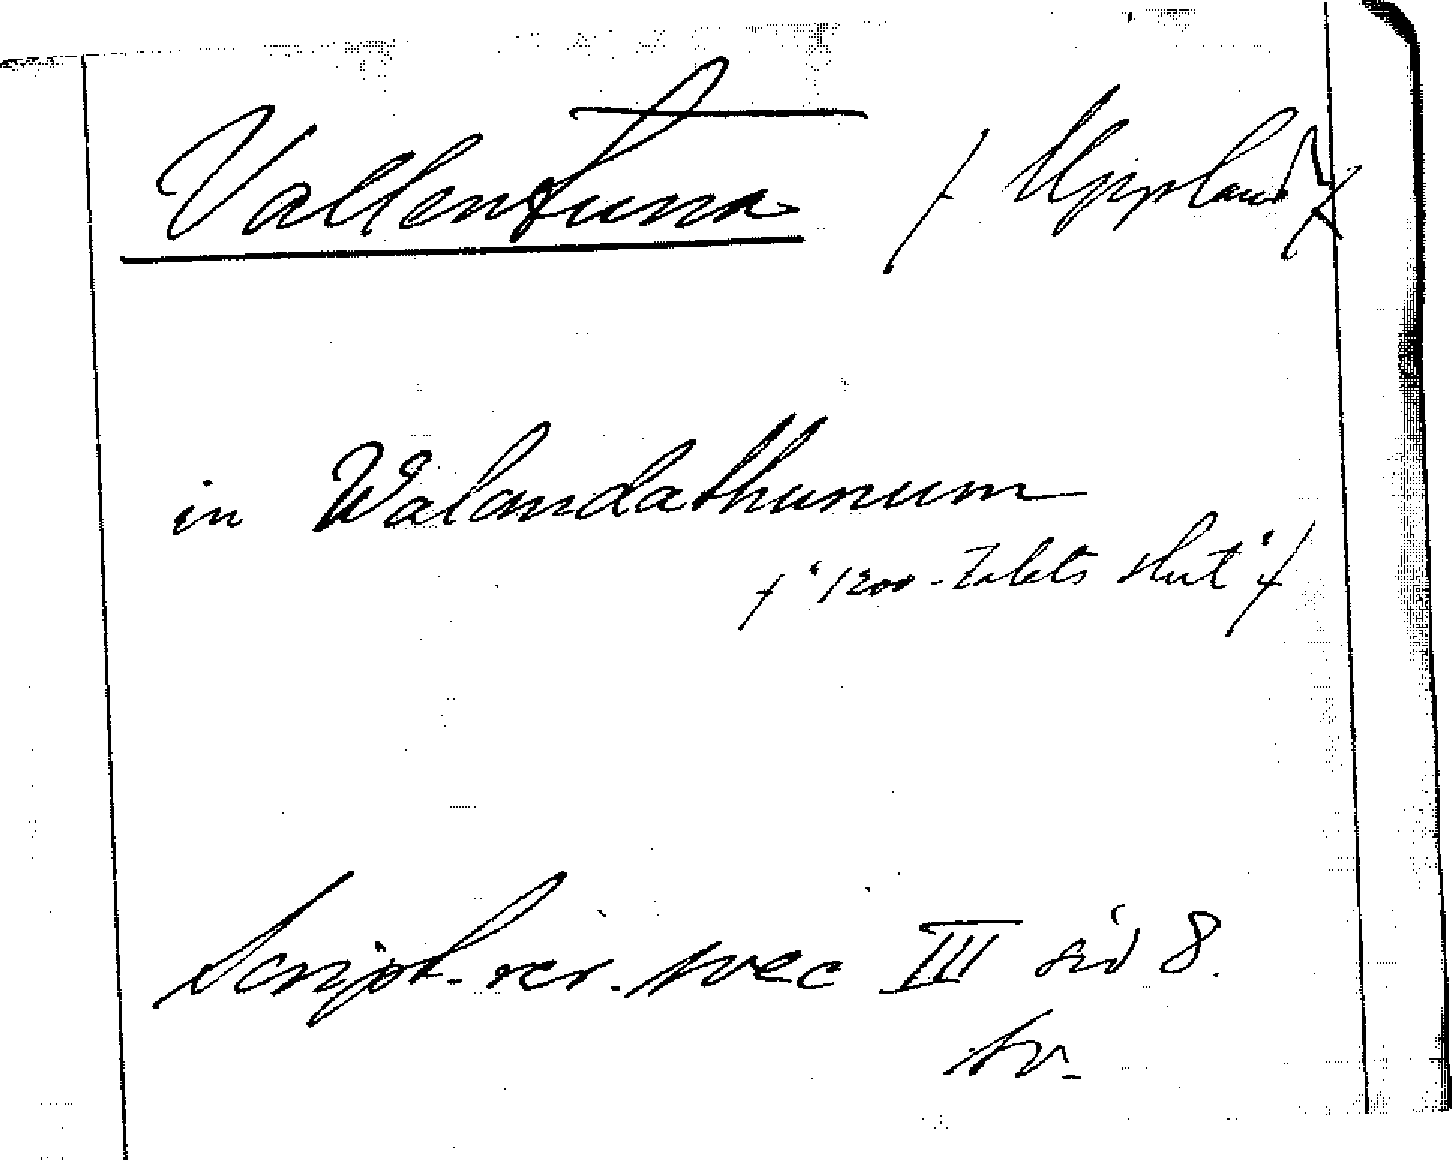 Vallentuna / Uppland /
in Walandathunum
/ "1200-talets slut" /
Script. rer. svec III sid 8.
sv.